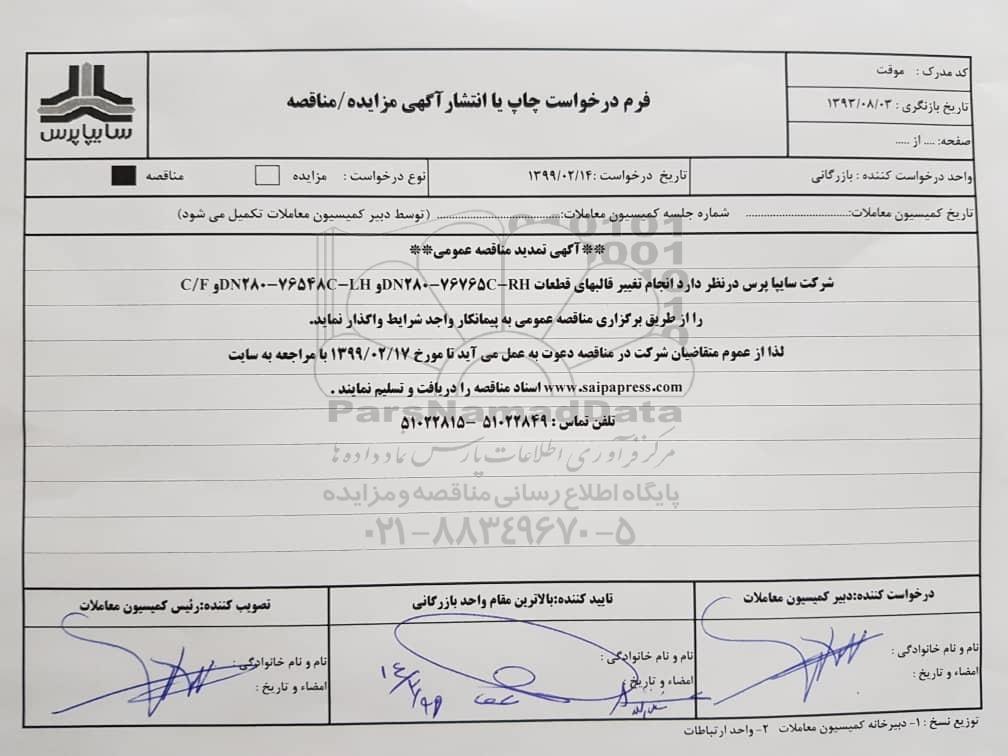 سایپا پرس
فرم درخواست چاپ یا انتشار آگهی مزایده/مناقصه
کد مدرک : موقت
تاریخ بازنگری : ۱۳۹۳/۰۸/۰۳
صفحه: .... از .....
واحد درخواست کننده : بازرگانی
تاریخ درخواست :۱۳۹۹/۰۲/۱۴
نوع درخواست : مزایده مناقصه
تاریخ کمیسیون معاملات:................................ شماره جلسه کمیسیون معاملات:................................ (توسط دبیر کمیسیون معاملات تکمیل می شود)
**آگهی تمدید مناقصه عمومی**
شرکت سایپا پرس درنظر دارد انجام تغییر قالبهای قطعات DN۲۸۰-۷۶۷۶۵C-RHو DN۲۸۰-۷۶۵۴۸C-LHو C/F
را از طریق برگزاری مناقصه عمومی به پیمانکار واجد شرایط واگذار نماید.
لذا از عموم متقاضیان شرکت در مناقصه دعوت به عمل می آید تا مورخ ۱۳۹۹/۰۲/۱۷ با مراجعه به سایت
www.saipapress.com اسناد مناقصه را دریافت و تسلیم نمایند .
تلفن تماس : ۵۱۰۲۲۸۴۹ -۵۱۰۲۲۸۱۵
ParsNamadData
مرکز فرآوری اطلاعات پارس نماد داده ها
پایگاه اطلاع رسانی مناقصه و مزایده
۰۲۱-۸۸۳۴۹۶۷۰-۵
درخواست کننده:دبیر کمیسیون معاملات
نام و نام خانوادگی :
امضاء و تاریخ :
تایید کننده:بالاترین مقام واحد بازرگانی
نام و نام خانوادگی :
امضاء و تاریخ :
تصویب کننده:رئیس کمیسیون معاملات
نام و نام خانوادگی :
امضاء و تاریخ :
توزیع نسخ : ۱- دبیرخانه کمیسیون معاملات ۲- واحد ارتباطات